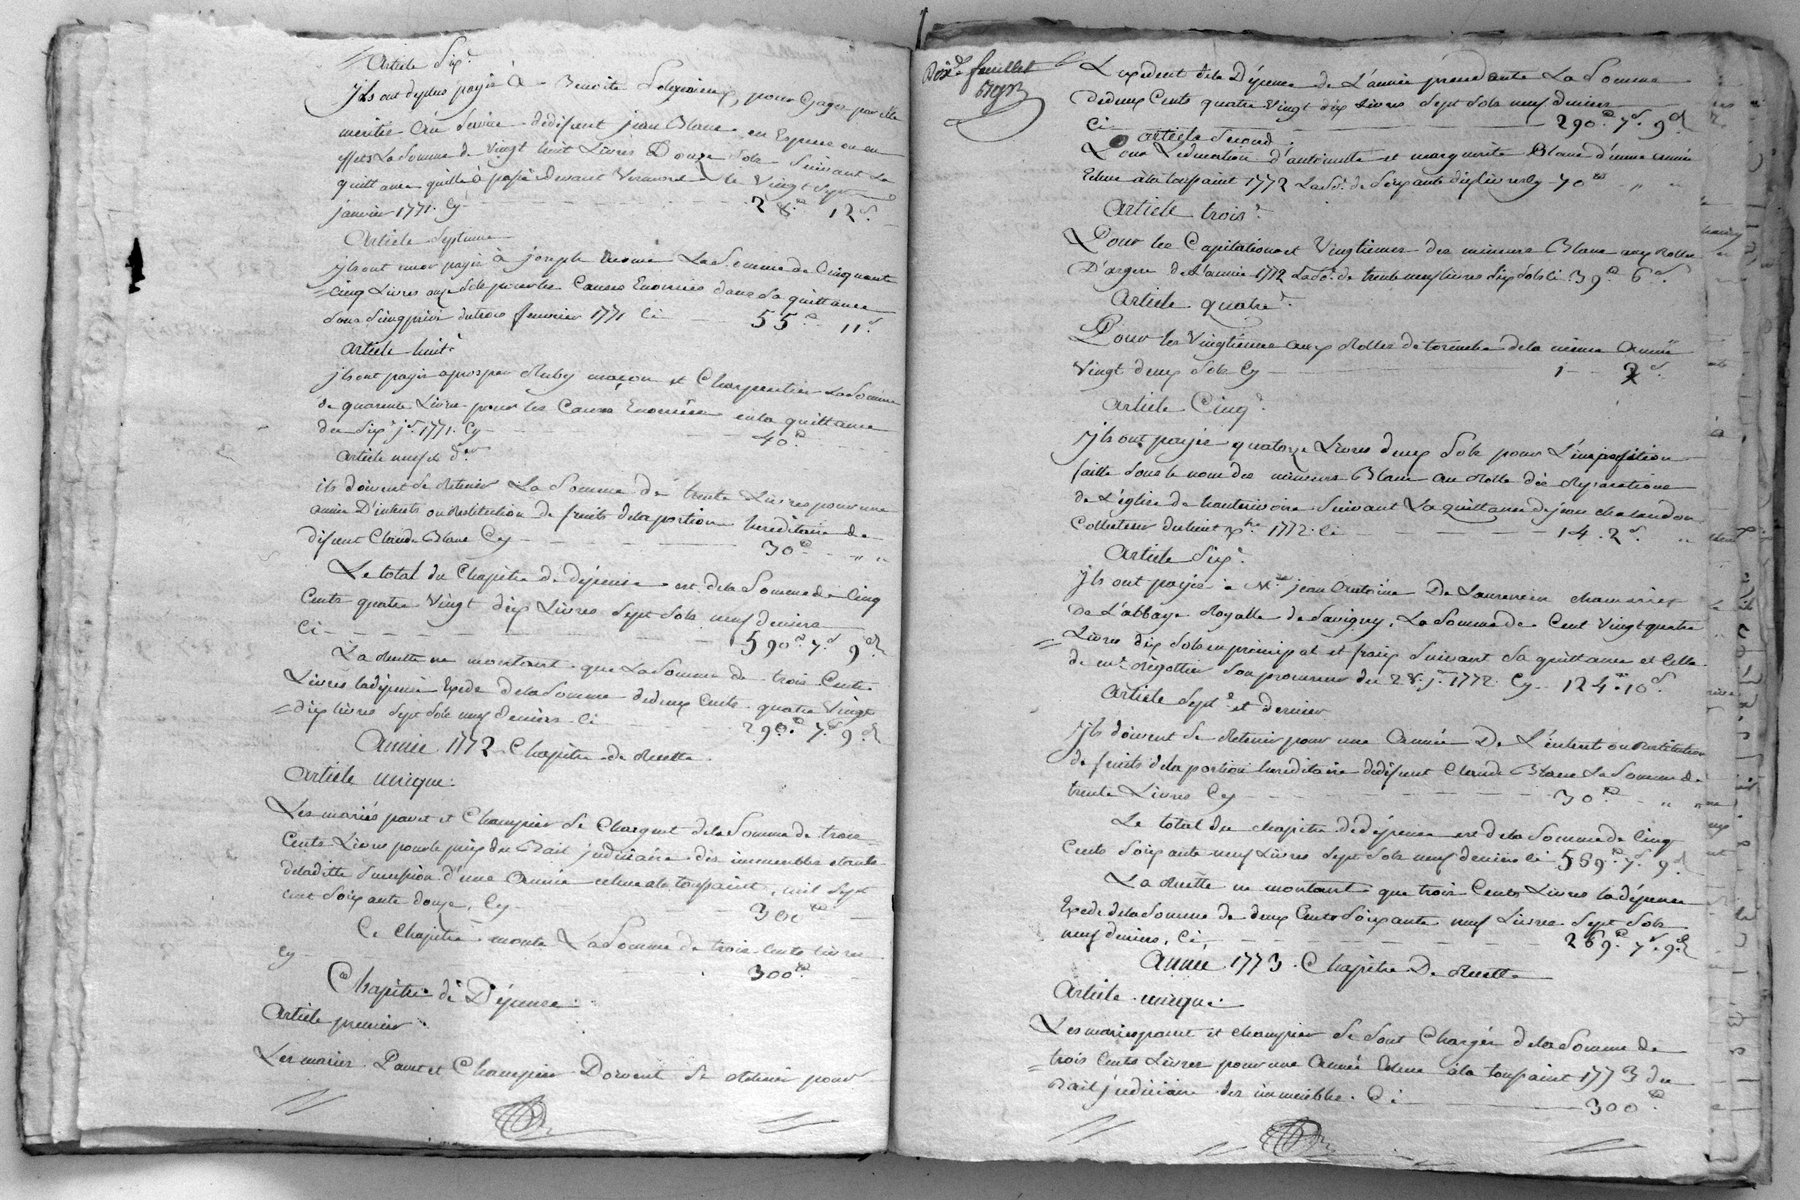 Article Six.e
jls ont deplus payés à Benoite pour Gages par elle
merités au Service dudéfunt jean Blanc en Espece ou en
effets La Somme de Vingt huit Livres Douze Sols Suivant La
quittance quelle à passé devant le Vingt Sept
janvier 1771. Cy 28.tt 12.s
Article Septieme
jls ont encor payés à joseph La Somme de Cinquante
Cinq Livres onze Sols pour les Causes Enoncées dans Sa quittance
Sous Seing privé du trois fevrier 1771 Ci 55.tt 11.s
Article huit.e
jls ont payés a prosper Maçon et Charpentier La Somme
de quarente Livres pour les Causes Enoncées en la quittance
du Six j.er 1771. Cy 40.tt
Article neuf & d.er
ils doivent se Retenir La Somme de trente Livres pour une
année D'interets ou Restitution de fruits de la portion hereditaire de
défunt Claude Blanc Cy 30.tt " "
Le total du Chapitre de Dépense est de la Somme de Cinq
Cents quatre Vingt dix Livres Sept Sols neuf deniers
Ci 590.tt 7.s 9.d
La Recette ne montant que La Somme de trois Cents
Livres la dépense Exede de la Somme de deux Cents quatre Vingt
dix livres Sept Sols neuf deniers. Ci 290.tt 7.s 9.d
Année 1772 Chapitre de Recette
Article unique.
Les mariés pavet et Champier Se Chargent de la Somme de trois
Cents Livres pour le prix du Bail judiciaire des immeubles
de la ditte Succession d'une Année echue a la toussaint, mil Sept
cent Soixante douze, Cy 300.tt
Ce Chapitre monte La Somme de trois Cents livres
cy 300.tt
Chapitre de Dépense.
Article premier.
Les mariés Pavet et Champier Doivent Se Retenir pour
feuillet
L'exedent de la Dépense de L'année précedente La Somme
de deux Cents quatre Vingt dix Livres Sept Sols neuf deniers
Ci 290.tt 7.s 9.d
Article Second.
Pour L'education d'antoinette et marguerite Blanc d'une année
Echue à la toussaint 1772 La So.e de Soixante dix livres Cy 70.tt " "
Article trois.e
Pour les Capitations et Vingtiemes des mineurs Blanc aux Rolles
D'argere de L'année 1772 La So.e de trente neuf livres Six Sols Ci 39.tt 6.s
Article quatre.e
Pour les Vingtiemes aux Rolles de de la même Année
Vingt deux Sols Cy 1 2.s
Article Cinq.e
jls ont payés quatorze Livres deux Sols pour L'imposition
faitte Sous le nom des mineurs Blanc au Rolle des Reparations
de L'église de hauterivoire Suivant La quittance de jean chalandon
Collecteur du huit x.bre 1772. Ci 14. 2.s "
Article Six.e
jls ont payés à M.re jean Antoine De Laurencin chamarier
De L'abbaye Royalle de Savigny, La Somme de Cent Vingt quatre
Livres dix Sols en principal et fraix Suivant Sa quittance et Celle
de m.e Rigottier Son procureur du 28. j.er 1772. Cy 124.tt 10.s
Article Sept.e et dernier
jls doivent Se Retenir pour une Année De L'interet ou Restitution
de fruits de la portion hereditaire dudéfunt Claude Blanc La Somme de
trente Livres Cy 30.tt " "
Le total du chapitre de dépense est de la Somme de Cinq
Cents Soixante neuf Livres Sept Sols neuf deniers Ci 569.tt 7.s 9.d
La Recette ne montant que trois Cents Livres la dépense
Exede de la Somme de deux Cents Soixante neuf Livres Sept Sols
neuf deniers, Ci, 269.tt 7.s 9.d
Année 1773. Chapitre De Recette
Article unique.
Les mariés pavet et champier Se Sont Chargés de la Somme de
trois Cents Livres pour une Année Echue à la toussaint 1773 du
Bail judiciaire des immeubles. Ci 300.tt